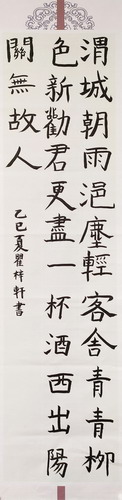 渭城朝雨浥塵輕客舍青青柳
色新勸君更盡一杯酒西出陽
關無故人
乙巳夏瞿梓軒書